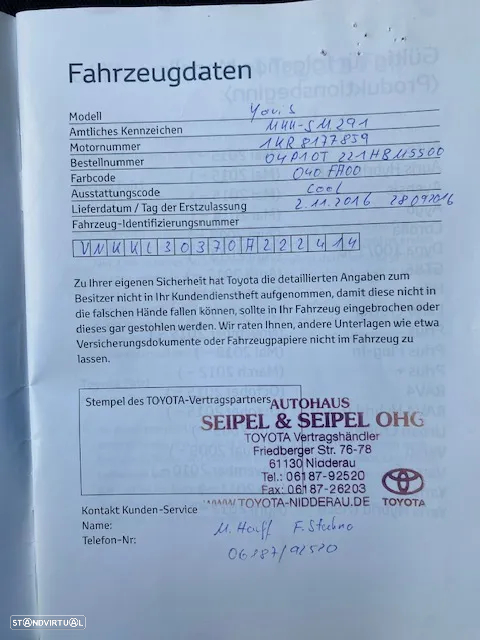 Fahrzeugdaten
Modell Yaris
Amtliches Kennzeichen MKK-SM291
Motornummer 1KR8177859
Bestellnummer 04P10T 221HBM5500
Farbcode 040 FA00
Ausstattungscode Cool
Lieferdatum / Tag der Erstzulassung 2.11.2016 28092016
Fahrzeug-Identifizierungsnummer
VNKKL30370A222414
Zu Ihrer eigenen Sicherheit hat Toyota die detaillierten Angaben zum
Besitzer nicht in Ihr Kundendienstheft aufgenommen, damit diese nicht in
die falschen Hände fallen können, sollte in Ihr Fahrzeug eingebrochen oder
dieses gar gestohlen werden. Wir raten Ihnen, andere Unterlagen wie etwa
Versicherungsdokumente oder Fahrzeugpapiere nicht im Fahrzeug zu
lassen.
Stempel des TOYOTA-Vertragspartners
AUTOHAUS
SEIPEL & SEIPEL OHG
TOYOTA Vertragshändler
Friedberger Str. 76-78
61130 Nidderau
Tel.: 06187-92520
Fax: 06187-26203
WWW.TOYOTA-NIDDERAU.DE
TOYOTA
Kontakt Kunden-Service
Name: M. F.
Telefon-Nr: 06187/92520
STANDVIRTUAL